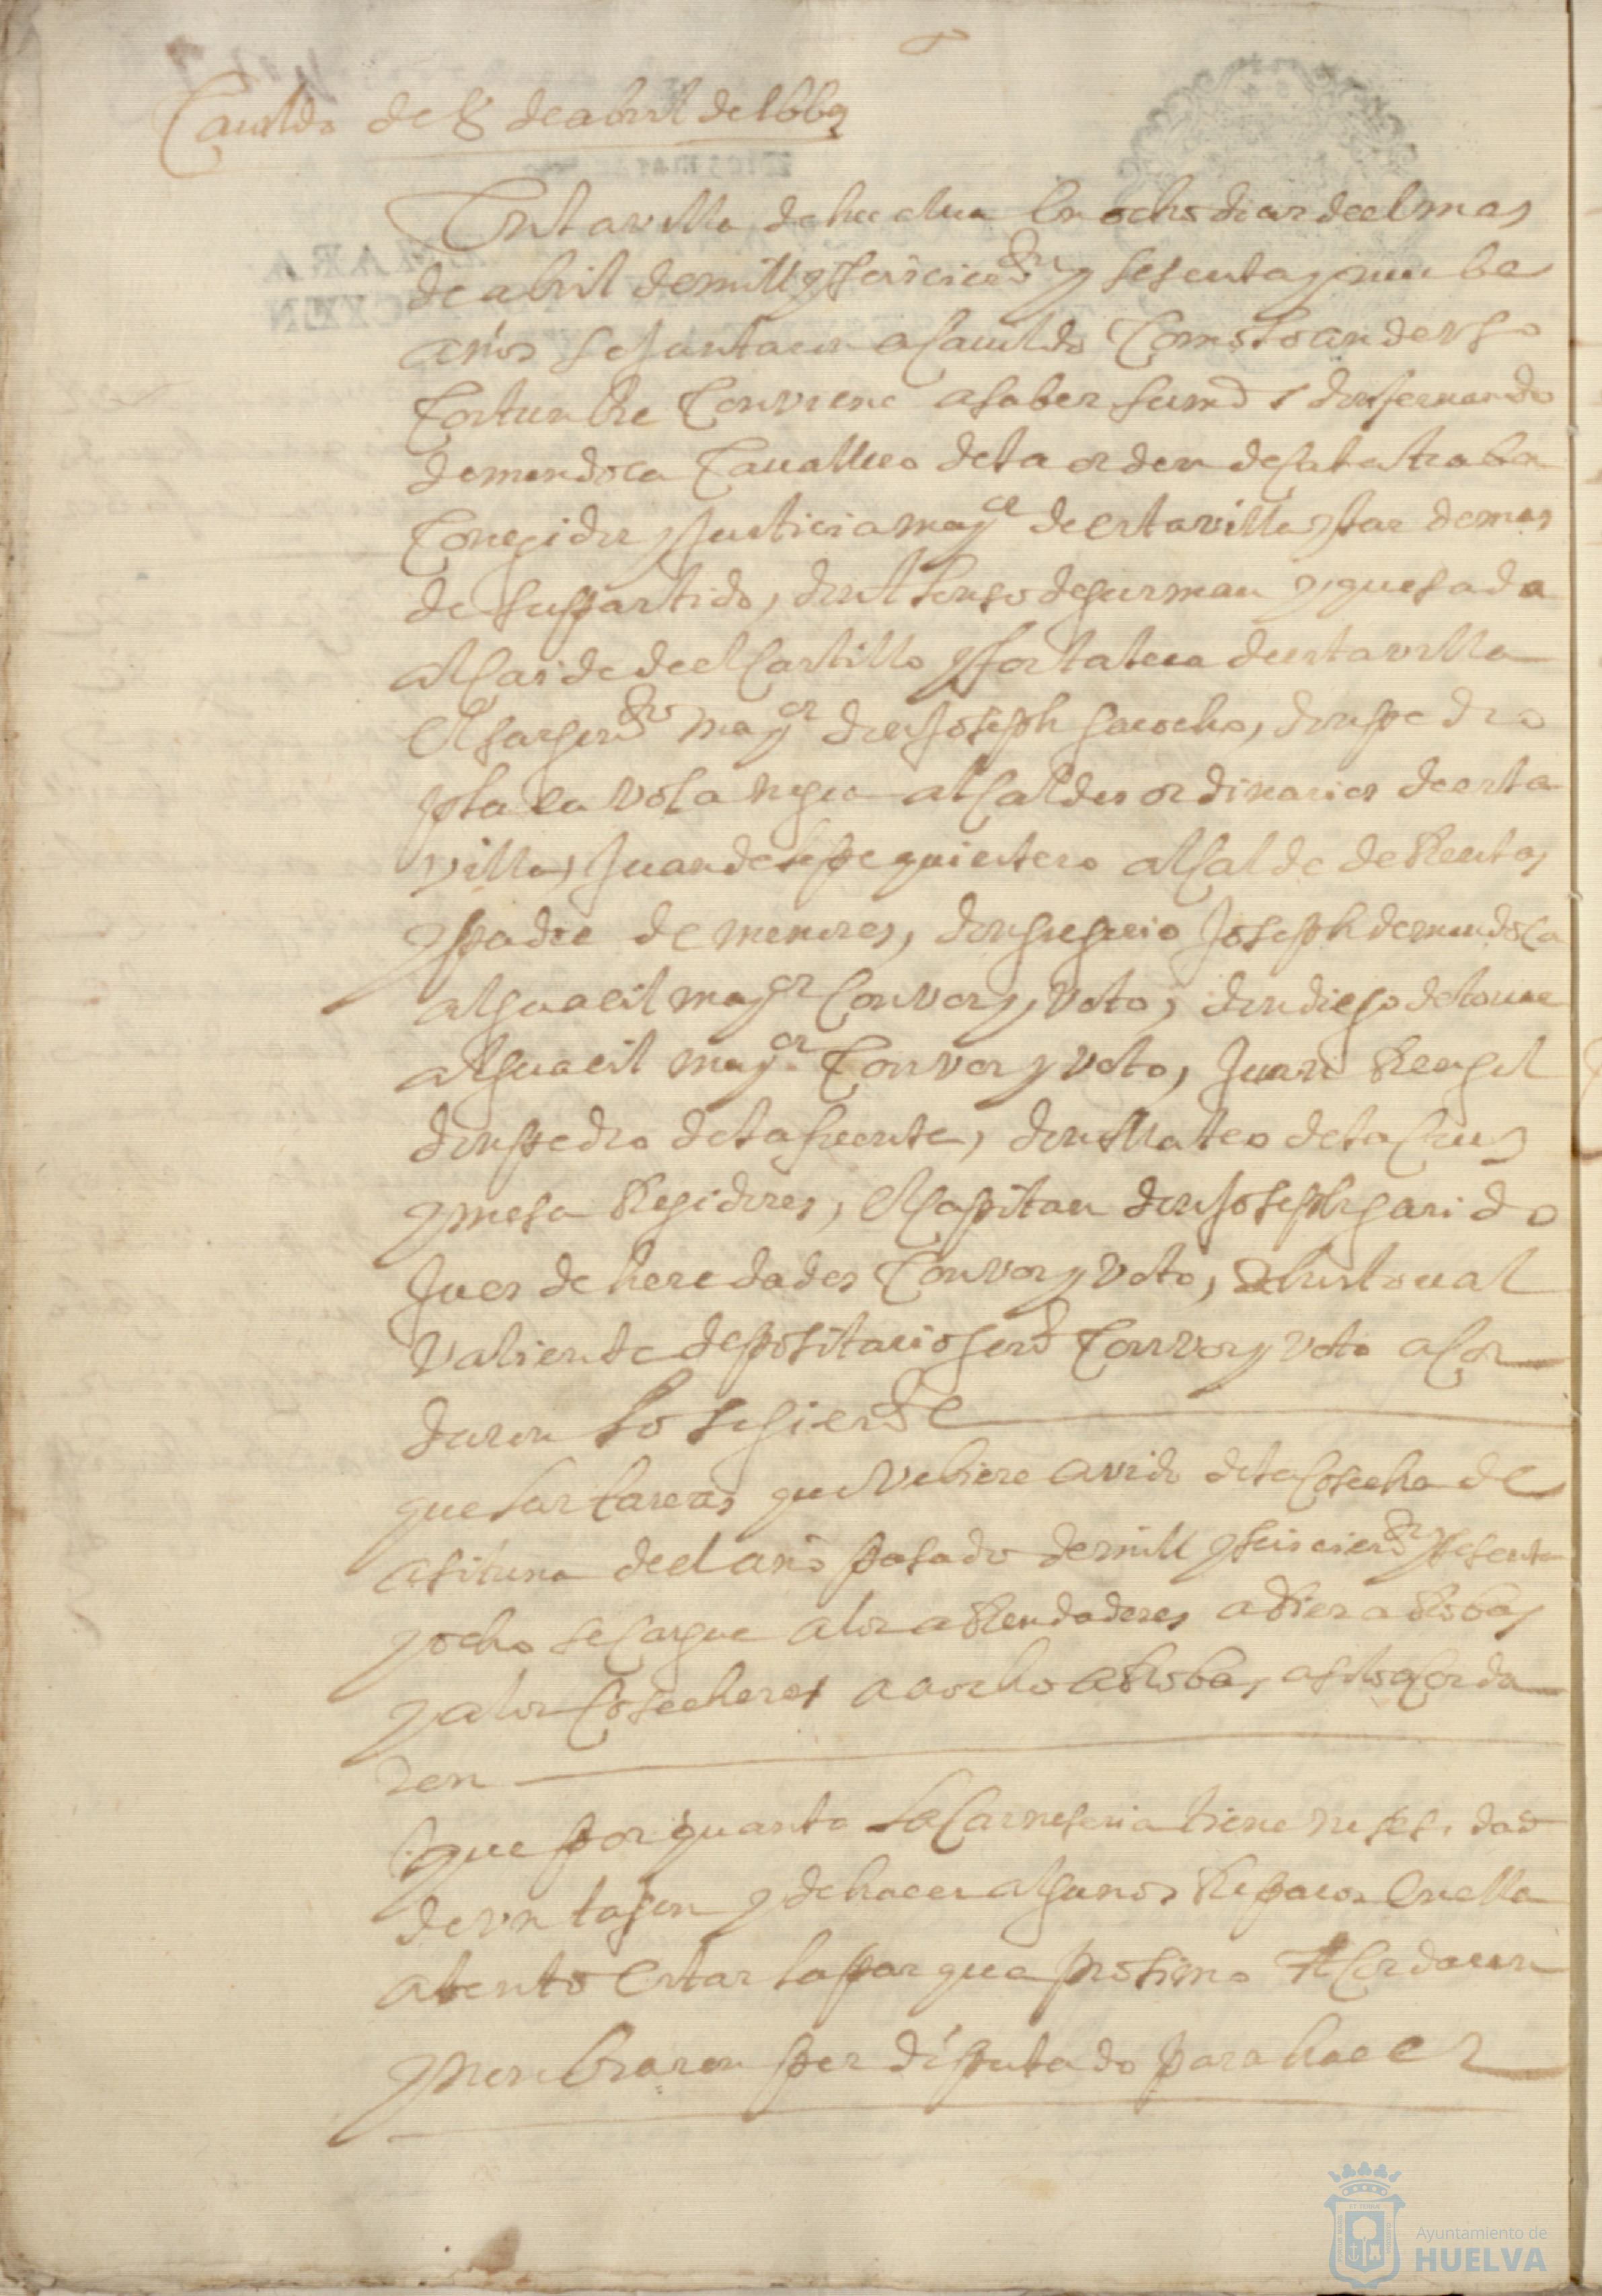 Cauildo de 8 de abril de 1669
En la villa de huelua En ocho dias de el mes
de abril de mill y seiscientos y sesenta y nuebe
años se juntaron a Cauildo Como lo an de vso
Costunbre Conviene a saber su md Don fernando
de mendoca Cauallero de la orden de Calatraba
Coregidor y Justicia mayor de esta villa y las demas
de su partido, don Alonso de gusman y quesada
alcaide de el Castillo y fortaleca de esta villa
El sargento mayor don Joseph garocho, don pedro
alcaldes ordinarios de esta
villa, Juan de lepe quintero alcalde de Rentas
y padre de menores, don Joseph de mendoca
alguacil mayor Con vos y voto, don diego de toue
alguacil mayor Con vos y voto, Juan Rengel
don pedro de la fuente, don Mateo de la Crus
y mesa Regidores, El capitan don Joseph garido
Jues de heredades Con vos y voto, Christoual
Valiente depositario genl Con vos y voto acor
daron lo segiente
que las tareas que Vbiere avido de la Cosecha de
asituna de el año pasado de mill y seiscientos y sesenta
y ocho se Cargue a los aRendadores a dies aRobas
y a los Cosecheros a ocho aRobas, asi lo acorda
ron
que por quanto la Carneseria tiene nesesidad
de vn tajon y de hacer algunos Reparos En ella
atento Estar la pasqua prosima Acordaron
y nonbraron por diputado para hacer
Ayuntamiento de
HUELVA